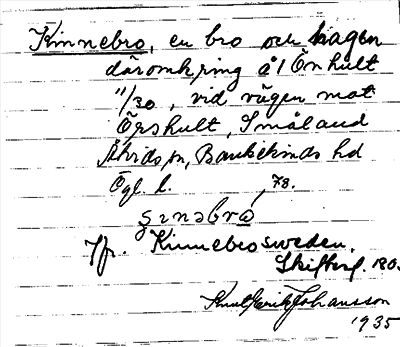 Kinnebro, en bro och hagen
däromkring å 1 Önhult
11/30, vid vägen mot
Örshult, Småland
Åtvids sn, Bankekinds hd
Ögl. l. 78.
Jfr. Kinnebrosweden,
Skiftesl. 180
Knut Erik Johansson
1935